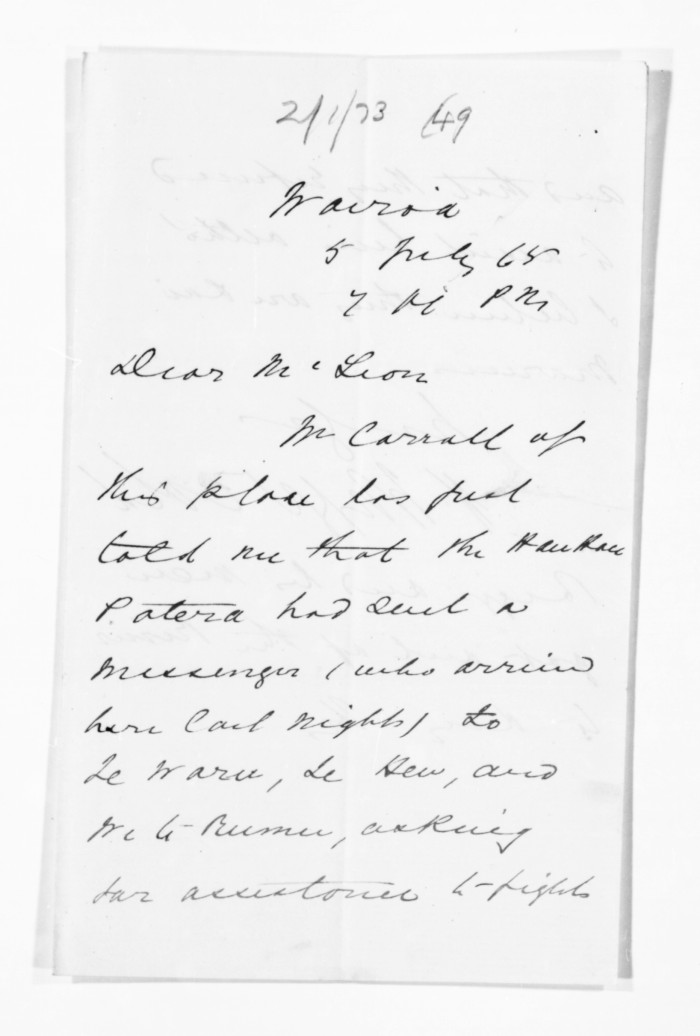 2/1/73 (49
Wairoa
5 July 65
7 PM
Dear McLean
Mr Carroll of
this place has just
told me that the Hau Hau
Patera had sent a
Messenger (who arrived
here last night) to
Te Waru, Te Heu, and
asking
for assistance to fight